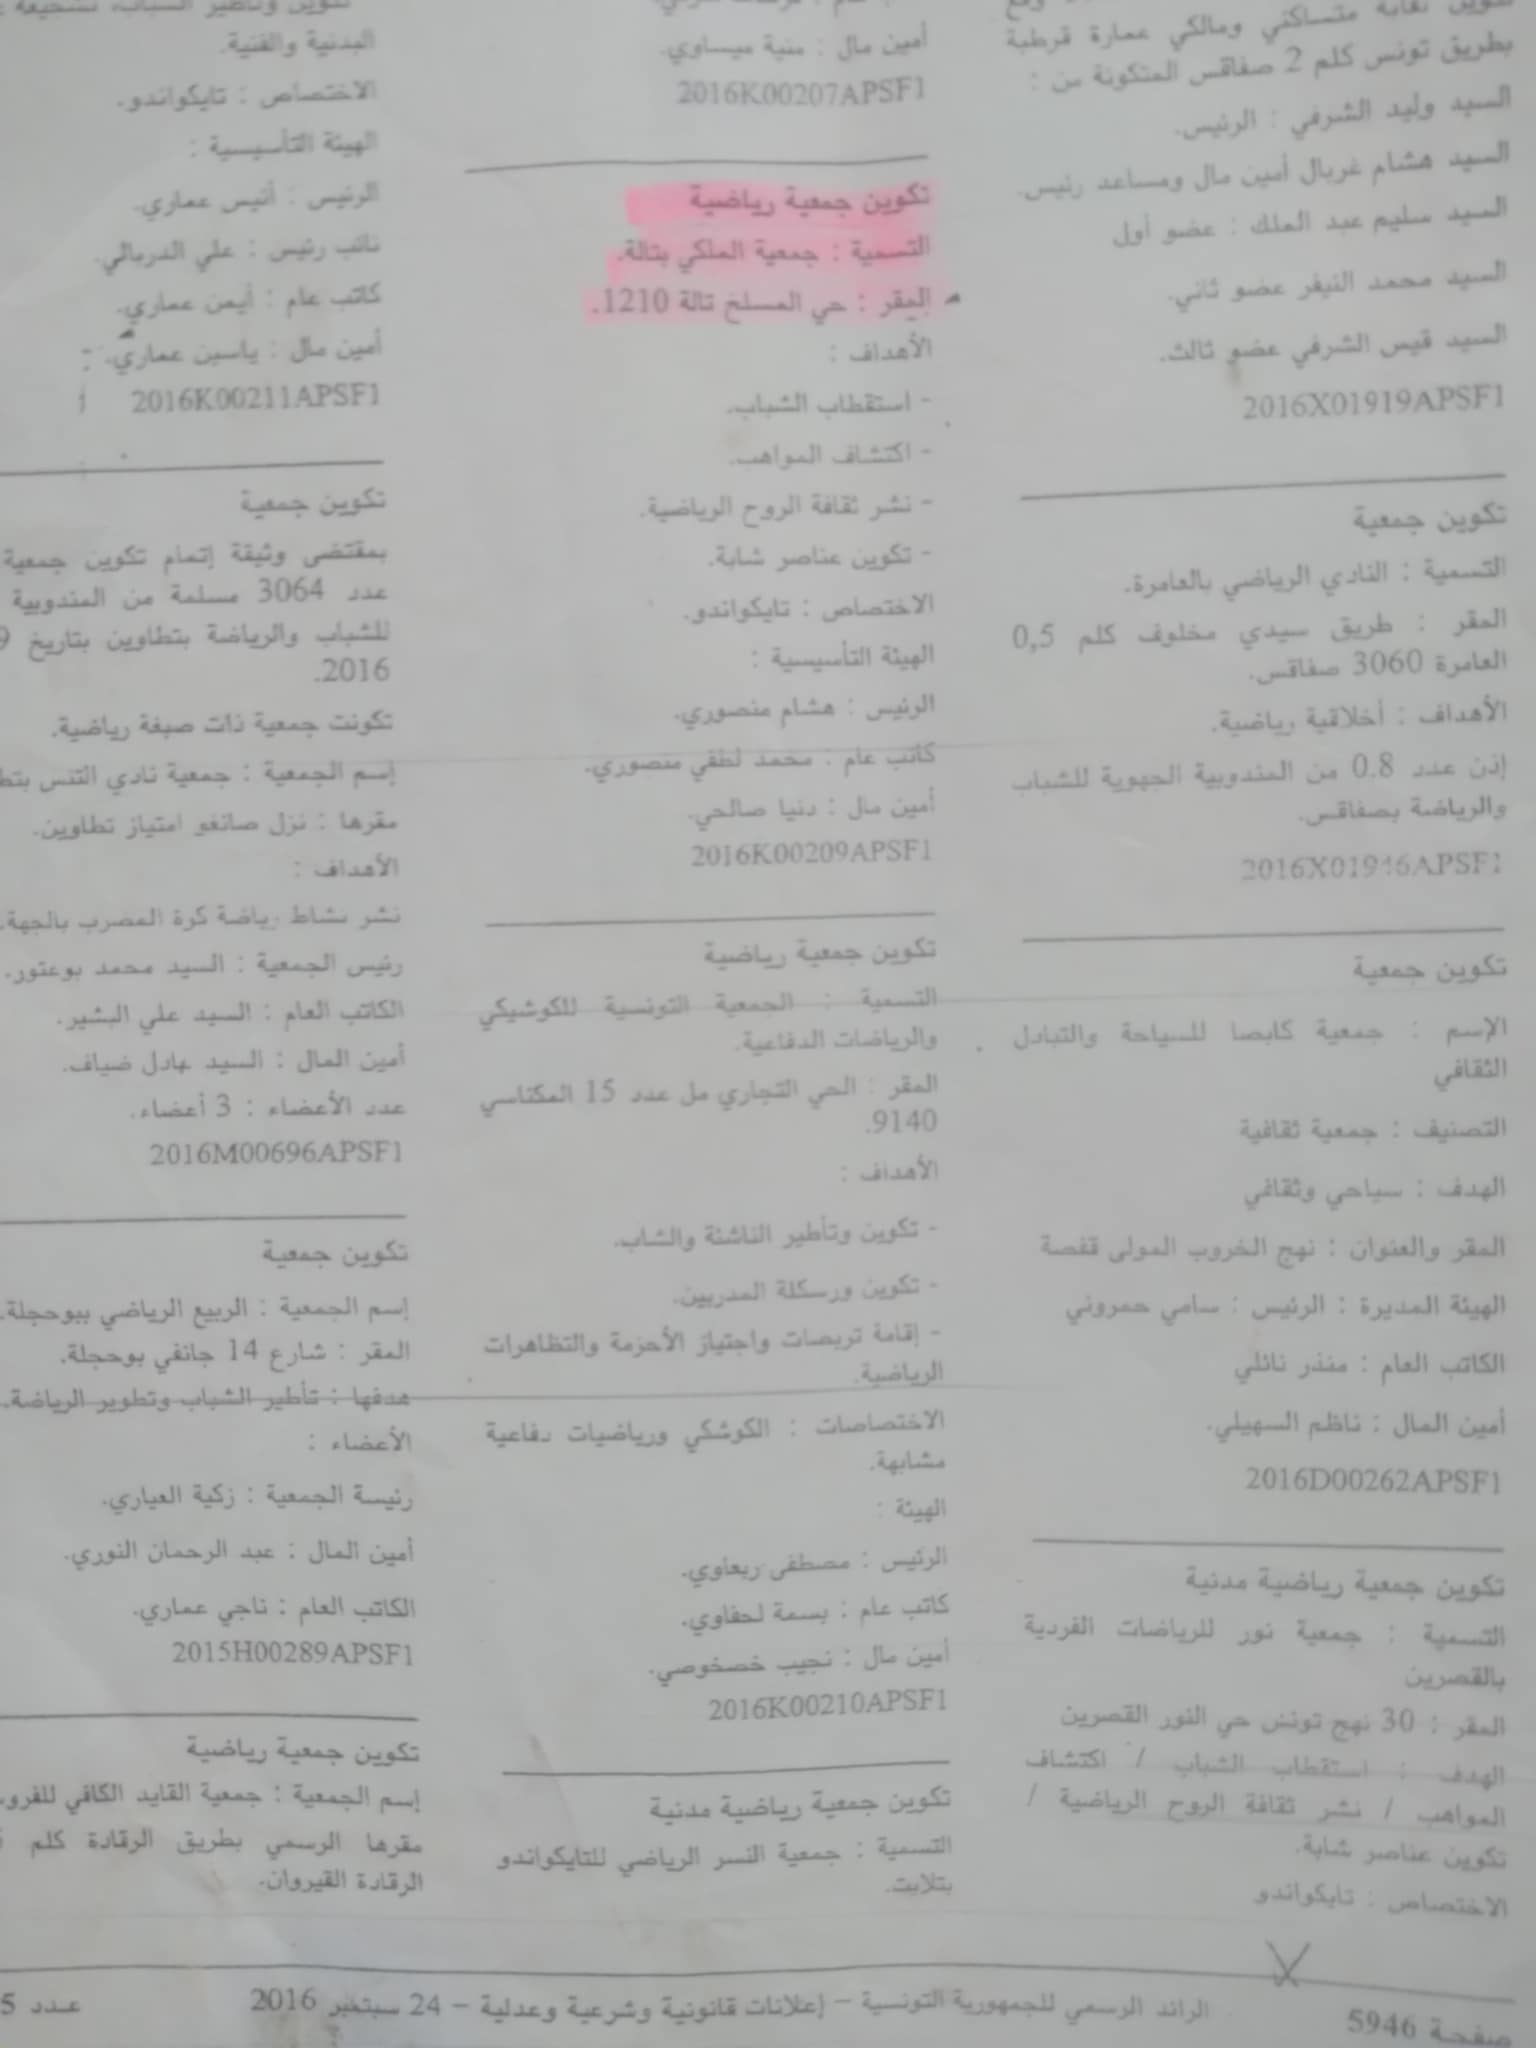 تكوين نقابة متساكني ومالكي عمارة قرطبة
بطريق تونس كلم 2 صفاقس المتكونة من :
السيد وليد الشرفي : الرئيس.
السيد هشام غربال أمين مال ومساعد رئيس.
السيد سليم عبد الملك : عضو أول
السيد محمد النيفر عضو ثاني.
السيد قيس الشرفي عضو ثالث.
2016X01919APSF1
تكوين جمعية
التسمية : النادي الرياضي بالعامرة.
المقر : طريق سيدي مخلوف كلم 0,5
العامرة 3060 صفاقس.
الأهداف : أخلاقية رياضية.
إذن عدد 0.8 من المندوبية الجهوية للشباب
والرياضة بصفاقس.
2016X01946APSF1
تكوين جمعية
الإسم : جمعية كابصا للسياحة والتبادل
الثقافي
التصنيف : جمعية ثقافية
الهدف : سياحي وثقافي
المقر والعنوان : نهج الخروب المولى قفصة
الهيئة المديرة : الرئيس : سامي حمروني
الكاتب العام : منذر نائلي
أمين المال : ناظم السهيلي.
2016D00262APSF1
تكوين جمعية رياضية مدنية
التسمية : جمعية نور للرياضات الفردية
بالقصرين
المقر : 30 نهج تونس حي النور القصرين
الهدف : استقطاب الشباب / اكتشاف
المواهب / نشر ثقافة الروح الرياضية /
تكوين عناصر شابة.
الاختصاص : تايكواندو
أمين مال : منية ميساوي.
2016K00207APSF1
تكوين جمعية رياضية
التسمية : جمعية الملكي بتالة.
المقر : حي المسلخ تالة 1210.
الأهداف :
- استقطاب الشباب.
- اكتشاف المواهب.
- نشر ثقافة الروح الرياضية.
- تكوين عناصر شابة.
الاختصاص : تايكواندو.
الهيئة التأسيسية :
الرئيس : هشام منصوري.
كاتب عام : محمد لطفي منصوري.
أمين مال : دنيا صالحي.
2016K00209APSF1
تكوين جمعية رياضية
التسمية : الجمعية التونسية للكوشيكي
والرياضات الدفاعية.
المقر : الحي التجاري مل عدد 15 المكناسي
9140.
الأهداف :
- تكوين وتأطير الناشئة والشاب.
- تكوين ورسكلة المدربين.
- إقامة تربصات واجتياز الأحزمة والتظاهرات
الرياضية.
الاختصاصات : الكوشكي ورياضيات دفاعية
مشابهة.
الهيئة :
الرئيس : مصطفى ربعاوي.
كاتب عام : بسمة لحفاوي.
أمين مال : نجيب خصخوصي.
2016K00210APSF1
تكوين جمعية رياضية مدنية
التسمية : جمعية النسر الرياضي للتايكواندو
بتلابت.
تكوين وتأطير الشباب، تشجيعه
البدنية والفنية.
الاختصاص : تايكواندو.
الهيئة التأسيسية :
الرئيس : أنيس عماري.
نائب رئيس : علي الدربالي.
كاتب عام : أيمن عماري.
أمين مال : ياسين عماري.
2016K00211APSF1
تكوين جمعية
بمقتضى وثيقة إتمام تكوين جمعية
عدد 3064 مسلمة من المندوبية
للشباب والرياضة بتطاوين بتاريخ 9
2016.
تكونت جمعية ذات صبغة رياضية.
إسم الجمعية : جمعية نادي التنس بتط
مقرها : نزل صانغو امتياز تطاوين.
الأهداف :
نشر نشاط رياضة كرة المضرب بالجهة.
رئيس الجمعية : السيد محمد بوعتور.
الكاتب العام : السيد علي البشير.
أمين المال : السيد هادل ضياف.
عدد الأعضاء : 3 أعضاء.
2016M00696APSF1
تكوين جمعية
إسم الجمعية : الربيع الرياضي ببوحجلة.
المقر : شارع 14 جانفي بوحجلة.
هدفها : تأطير الشباب وتطوير الرياضة.
الأعضاء :
رئيسة الجمعية : زكية العياري.
أمين المال : عبد الرحمان النوري.
الكاتب العام : ناجي عماري.
2015H00289APSF1
تكوين جمعية رياضية
إسم الجمعية : جمعية القايد الكافي للفروس
مقرها الرسمي بطريق الرقادة كلم
الرقادة القيروان.
صفحة 5946
الرائد الرسمي للجمهورية التونسية – إعلانات قانونية وشرعية وعدلية – 24 سبتمبر 2016
عدد 5